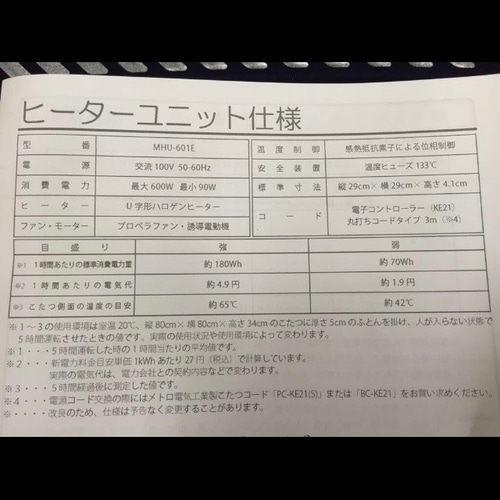 ヒーターユニット仕様
型番 MHU-601E 温度制御 感熱抵抗素子による位相制御
電源 交流100V 50-60Hz 安全装置 温度ヒューズ 133℃
消費電力 最大600W 最小90W 標準寸法 縦29cm×横29cm×高さ4.1cm
ヒーター U字形ハロゲンヒーター コード 電子コントローラー(KE21)
ファン・モーター プロペラファン・誘導電動機 丸打ちコードタイプ 3m(※4)
目盛り 強 弱
※1 1時間あたりの標準消費電力量 約180Wh 約70Wh
※2 1時間あたりの電気代 約4.9円 約1.9円
※3 こたつ側面の温度の目安 約65℃ 約42℃
※1~3の使用環境は室温20℃、縦80cm×横80cm×高さ34cmのこたつに厚さ5cmのふとんを掛け、人が入らない状態で
5時間運転させたときの値です。実際の使用状況や使用環境によって変わります。
※1・・・5時間運転した時の1時間当たりの平均値です。
※2・・・新電力料金目安単価1kWhあたり27円(税込)で計算しています。
実際の電気代は、電力会社との契約内容などで変わります。
※3・・・5時間経過後に測定した値です。
※4・・・電源コード交換の際にはメトロ電気工業製こたつコード「PC-KE21(S)」または「BC-KE21」をお買い求めください。
※・・・・改良のため、仕様は予告なく変更することがあります。